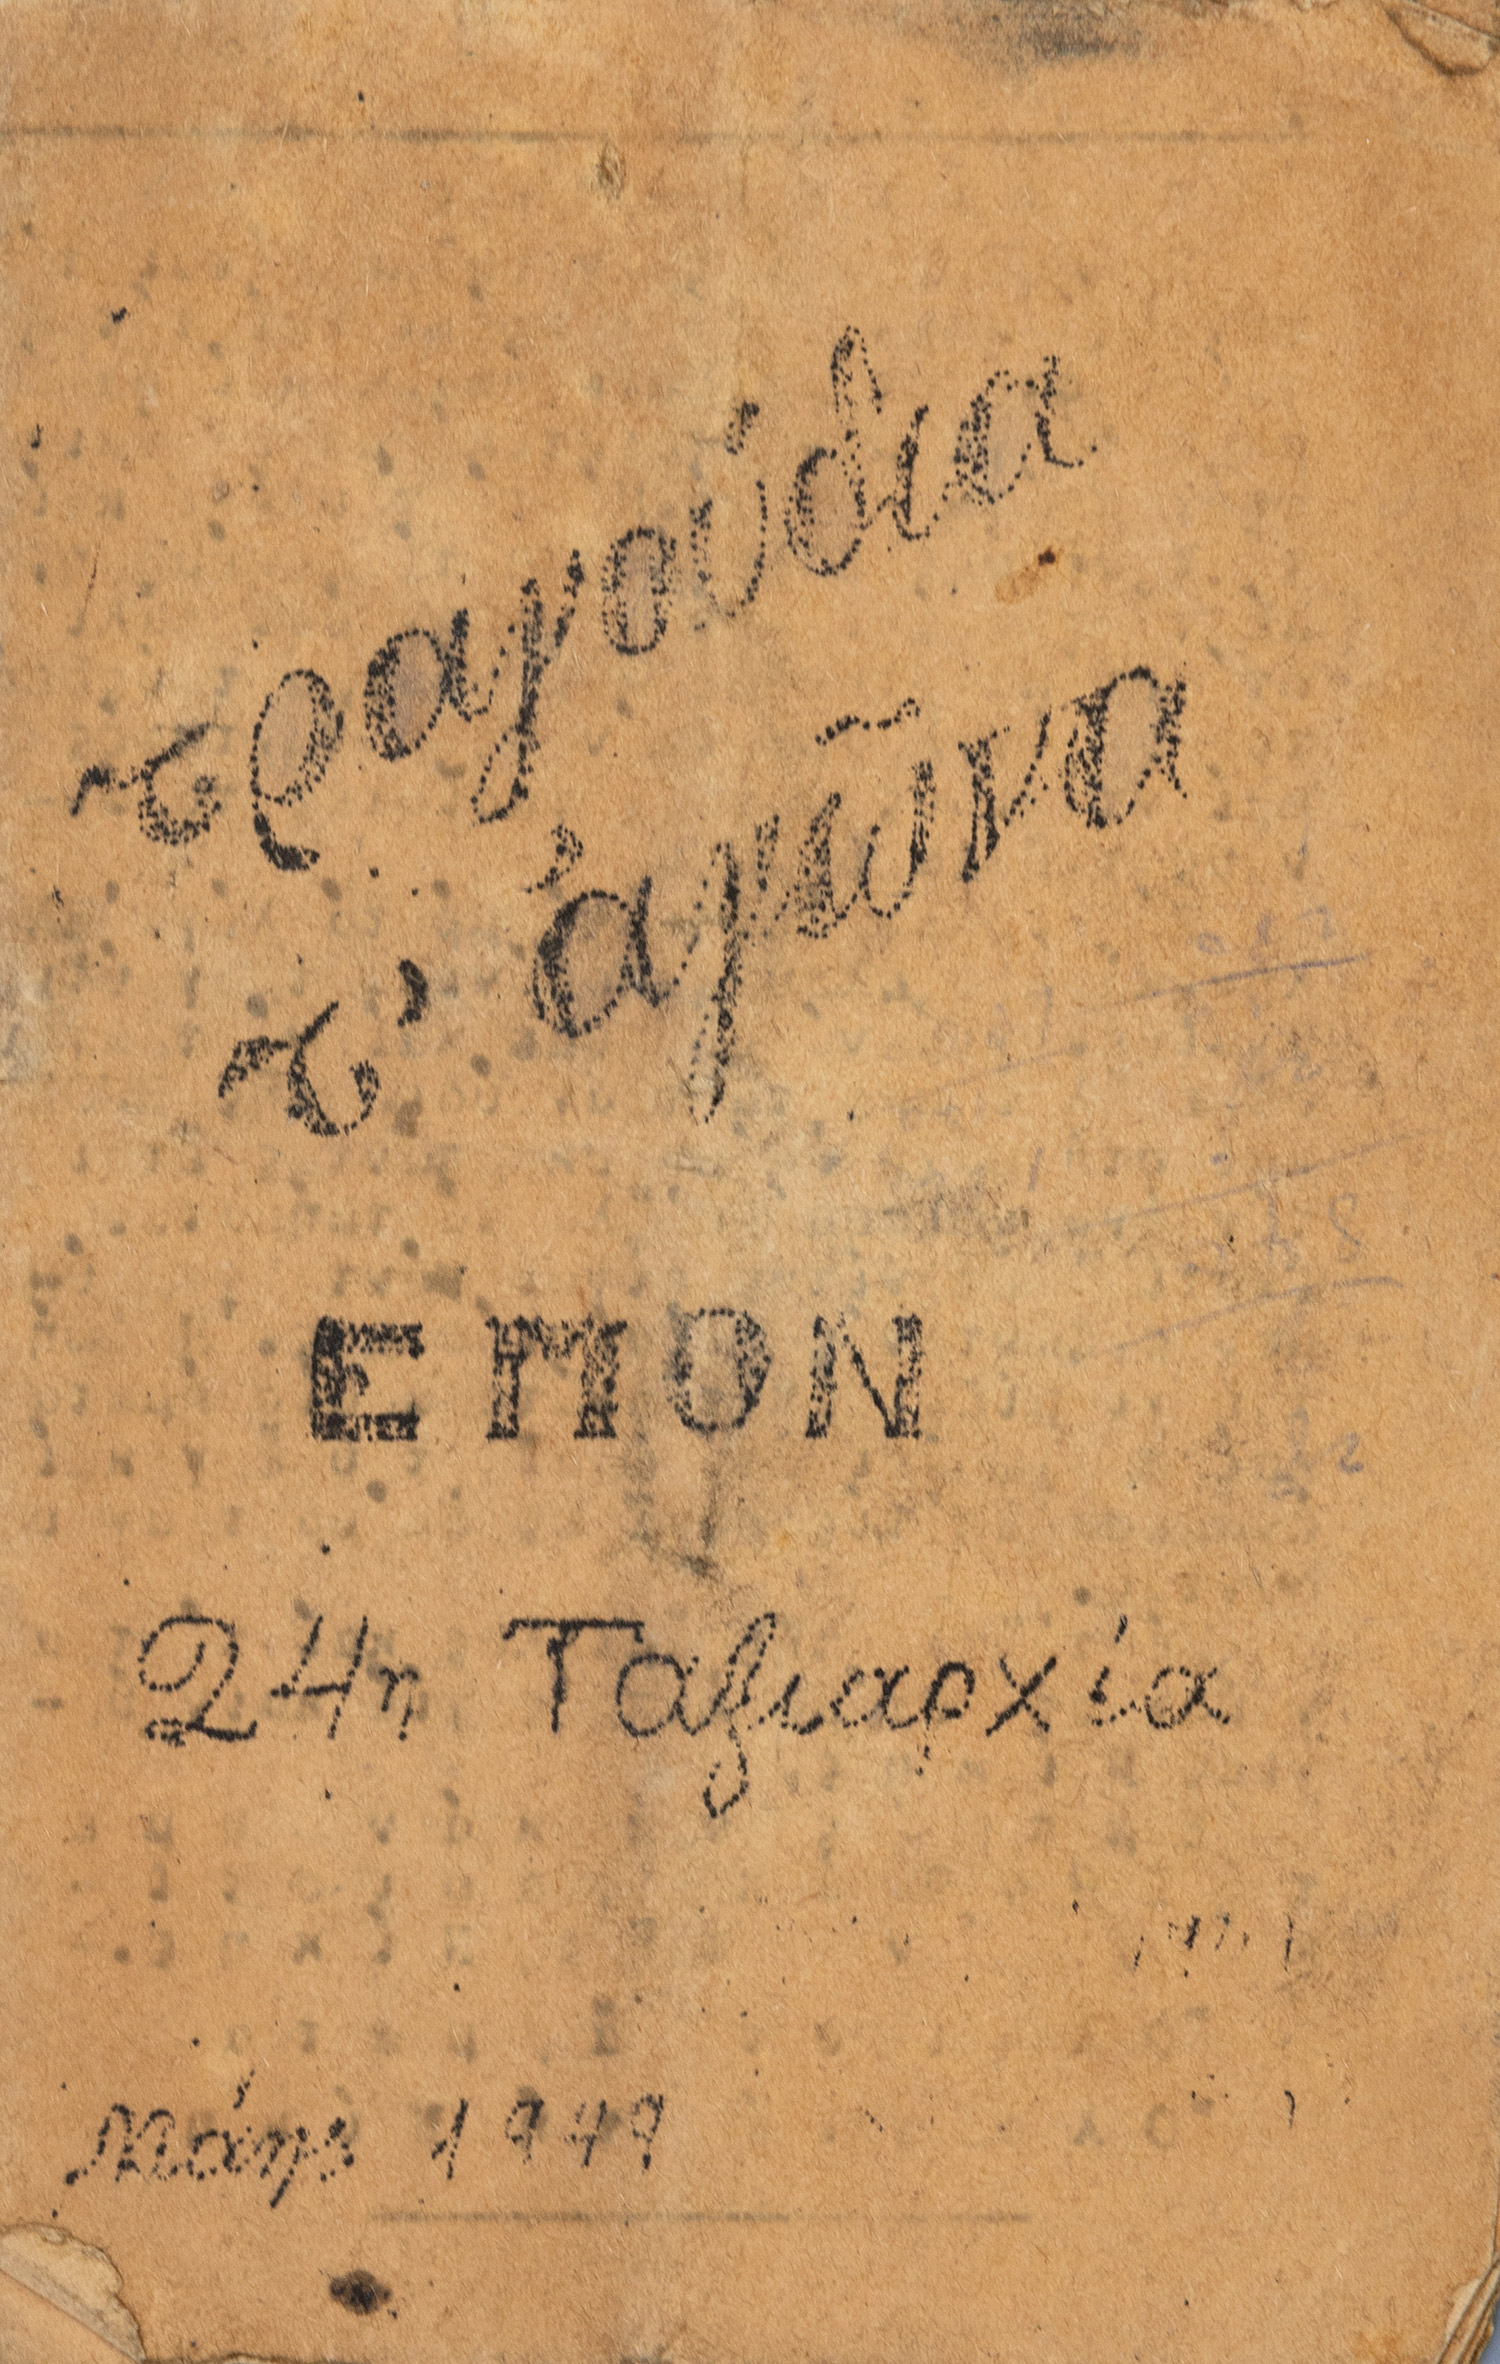 τραγούδια
τ' ἀγῶνα
ΕΠΟΝ
24η Ταξιαρχία
Μάης 1949